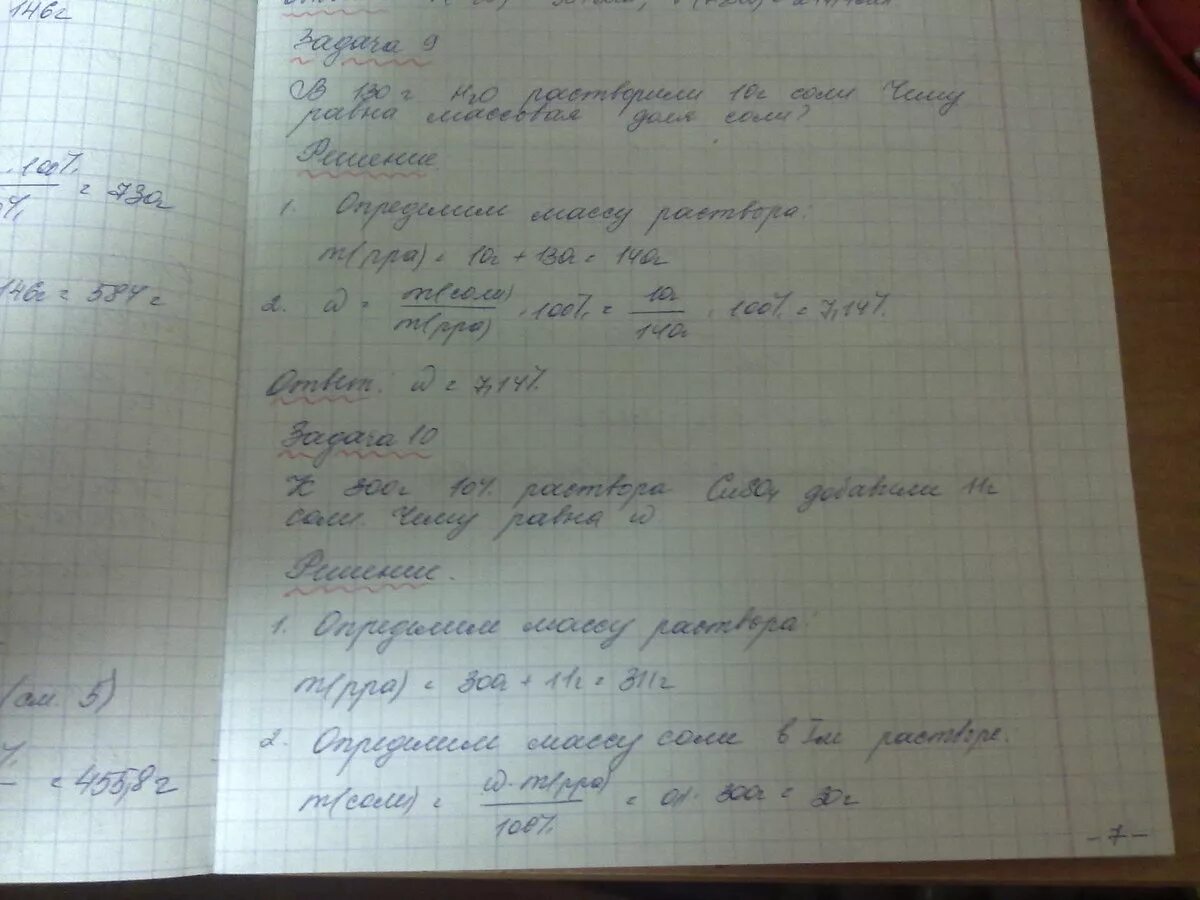 146г
Задача 9
В 130 г H₂O растворили 10г соли Чему
равна массовая доля соли?
Решение
1. Определим массу раствора:
m(рра) = 10г + 130г = 140г
2. ω = m(соли)/m(рра) · 100% = 10г/140г · 100% = 7,14%
Ответ: ω = 7,14%
Задача 10
К 300г 10% раствора CuSO₄ добавили 11г
соли. Чему равна ω
Решение.
1. Определим массу раствора:
m(рра) = 300г + 11г = 311г
2. Определим массу соли в Iм растворе.
m(соли) = ω·m(рра)/100% = 0,1 · 300г = 30г
- 7 -
· 100%
= 730г
146г = 584 г
(см. 5)
= 455,8г